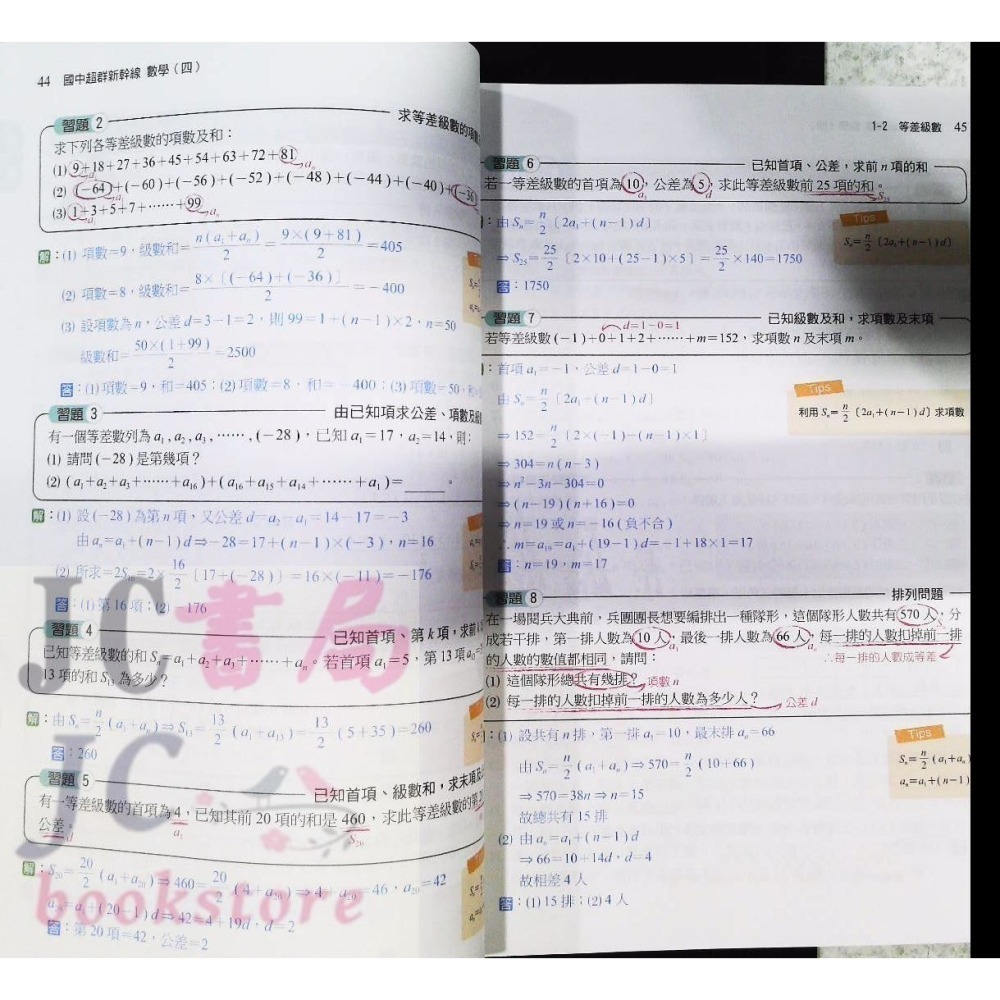 44 國中超群新幹線 數學(四)
習題 2
求等差級數的項數
求下列各等差級數的項數及和：
(1) 9+18+27+36+45+54+63+72+81 aₙ
(2) (−64)+(−60)+(−56)+(−52)+(−48)+(−44)+(−40)+(−36)
(3) 1+3+5+7+……+99 aₙ
解：(1) 項數=9，級數和= n(a₁+aₙ)/2 = 9×(9+81)/2 =405
(2) 項數=8，級數和= 8×〔(−64)+(−36)〕/2 =−400
(3) 設項數為 n，公差 d=3−1=2，則 99=1+(n−1)×2，n=50
級數和= 50×(1+99)/2 =2500
答：(1)項數=9，和=405；(2)項數=8，和=−400；(3)項數=50，和
習題 3
由已知項求公差、項數及
有一個等差數列為 a₁,a₂,a₃,……,(−28)，已知 a₁=17，a₂=14，則：
(1) 請問(−28)是第幾項？
(2) (a₁+a₂+a₃+……+a₁₆)+(a₁₆+a₁₅+a₁₄+……+a₁)=＿＿。
解：(1) 設(−28)為第 n 項，又公差 d=a₂−a₁=14−17=−3
由 aₙ=a₁+(n−1)d⇒−28=17+(n−1)×(−3)，n=16
(2) 所求=2S₁₆=2× 16/2〔17+(−28)〕=16×(−11)=−176
答：(1)第16項；(2)−176
習題 4
已知首項、第 k 項，求前
已知等差級數的和 Sₙ=a₁+a₂+a₃+……+aₙ。若首項 a₁=5，第 13 項
13 項的和 S₁₃ 為多少？
解：由 Sₙ= n/2 (a₁+aₙ)⇒S₁₃= 13/2 (a₁+a₁₃)= 13/2 (5+35)=260
答：260
習題 5
已知首項、級數和，求末項及
有一等差級數的首項為 4，已知其前 20 項的和是 460，求此等差級數的第
a₁ S₂₀
公差。 d
解：S₂₀= 20/2 (a₁+a₂₀)⇒460= 20/2 (4+a₂₀)⇒4+a₂₀=46，a₂₀=42
a₂₀=a₁+(20−1)d⇒42=4+19d，d=2
答：第20項=42，公差=2
JC書局
JC
bookstore
1-2 等差級數 45
習題 6
已知首項、公差，求前 n 項的和
若一等差級數的首項為10，公差為5，求此等差級數前 25 項的和。
a₁ d S₂₅
：由 Sₙ= n/2〔2a₁+(n−1)d〕
⇒S₂₅= 25/2〔2×10+(25−1)×5〕= 25/2 ×140=1750
答：1750
Tips
Sₙ= n/2〔2a₁+(n−1)d〕
習題 7
已知級數及和，求項數及末項
d=1−0=1
若等差級數(−1)+0+1+2+……+m=152，求項數 n 及末項 m。
：首項 a₁=−1，公差 d=1−0=1
由 Sₙ= n/2〔2a₁+(n−1)d〕
⇒152= n/2〔2×(−1)−(n−1)×1〕
⇒304=n(n−3)
⇒n²−3n−304=0
⇒(n−19)(n+16)=0
⇒n=19 或 n=−16(負不合)
∴m=a₁₉=a₁+(19−1)d=−1+18×1=17
答：n=19，m=17
Tips
利用 Sₙ= n/2〔2a₁+(n−1)d〕求項數
習題 8
排列問題
在一場閱兵大典前，兵團團長想要編排出一種隊形，這個隊形人數共有570人，分
成若干排，第一排人數為10人，最後一排人數為66人，每一排的人數扣掉前一排
的人數的數值都相同，請問：
∴每一排的人數成等差
(1) 這個隊形總共有幾排？ 項數 n
(2) 每一排的人數扣掉前一排的人數為多少人？ 公差 d
：(1) 設共有 n 排，第一排 a₁=10，最末排 aₙ=66
由 Sₙ= n/2 (a₁+aₙ)⇒570= n/2 (10+66)
⇒570=38n⇒n=15
故總共有 15 排
(2) 由 aₙ=a₁+(n−1)d
⇒66=10+14d，d=4
故相差 4 人
答：(1)15 排；(2)4 人
Tips
Sₙ= n/2 (a₁+aₙ)
aₙ=a₁+(n−1)